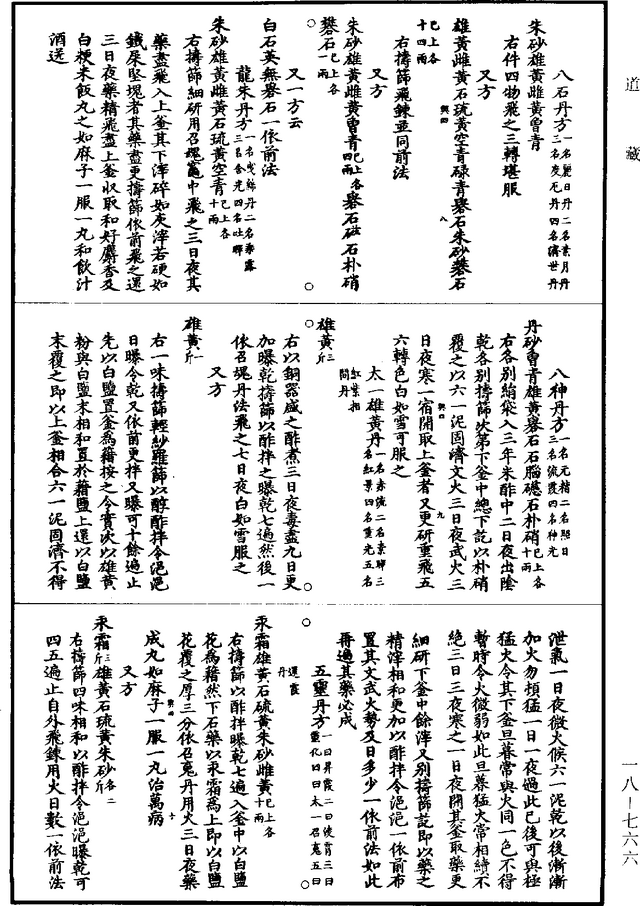 道藏
八石丹方一名麗日丹二名素月丹三名炭瓦丹四名濟世丹
朱砂雄黃雌黃曾青
右件四物飛之三轉堪服
又方
雄黃雌黃石硫黃空青碌青礜石朱砂礬石已上各十四兩
右擣篩飛鍊並同前法
又方
朱砂雄黃雌黃曾青已上各四兩礜石磁石朴硝礬石已上各一兩
又一方云
白石英無礜石一依前法
龍朱丹方
朱砂雄黃雌黃石硫黃空青已上各十兩
右擣篩細研用召魂竈中飛之三日夜其
藥盡飛入上釜其下滓碎如灰滓若硬如
鐵屎堅塊者其藥盡更擣篩依前飛之還
三日夜藥精飛盡上釜收取和好麝香及
白粳米飯丸之如麻子一服一丸和飲汁
酒送
八神丹方一名元精二名照日三名流霞四名神光
丹砂曾青雄黃礜石石腦磁石朴硝已上各十兩
右各別絹袋入三年朱酢中二日夜出陰
乾各別擣篩次第下釜中總下訖以朴硝
覆之以六一泥固濟文火三日夜武火三
日夜寒一宿開取上釜者又更研重飛五
六轉色白如雪可服之
太一雄黃丹
雄黃三斤
右以銅器盛之酢煮三日夜毒盡九日更
加曝乾擣篩以酢拌之曝乾七遍然後一
依召魂丹法飛之七日夜白如雪服之
又方
雄黃一斤
右一味擣篩輕紗羅篩以醇酢拌令浥浥
日曝令乾又依前更拌又曝可十餘遍止
先以白鹽置釜為藉按之令實次以雄黃
粉與白鹽末相和置於藉鹽上還以白鹽
末覆之即以上釜相合六一泥固濟不得
泄氣一日夜微火候六一泥乾以後漸漸
加火勿頓猛一日一夜過此已後可與極
猛火令其下釜旦暮常與火同一色不得
暫時令火微弱如此旦暮猛火常相續不
絕三日三夜寒之一日夜開其釜取藥更
細研下釜中餘滓又別擣篩訖即以藥之
精滓相和更加以酢拌令浥浥一依前布
置其文武火勢及日多少一依前法如此
再過其藥必成
五靈丹方
汞霜雄黃石硫黃朱砂雌黃已上各十兩
右擣篩以酢拌曝乾七遍入釜中以白鹽
花為藉然下石藥以汞霜為上即以白鹽
花覆之厚三分依召魂丹用火三日夜藥
成丸如麻子一服一丸治萬病
又方
汞霜三斤雄黃石硫黃朱砂各二斤
右擣篩四味相和以酢拌令浥浥曝乾可
四五遍止自外飛鍊用火日數一依前法
一八—七六六